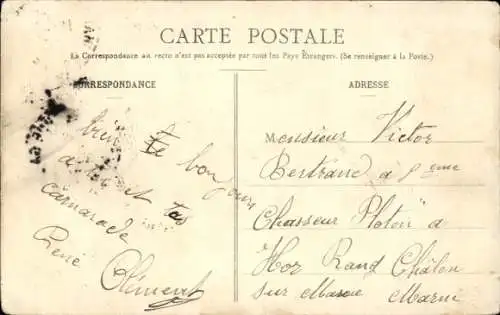 CARTE POSTALE
La Correspondance au recto n'est pas acceptée par tous les Pays Étrangers. (Se renseigner à la Poste.)
CORRESPONDANCE
ADRESSE
bien le bonjour
a et tas
camarade
René
Clément
Monsieur Victor
Bertrand a 8eme
Chasseur Ploton a
Hor Rang Châlon
sur Marne Marne